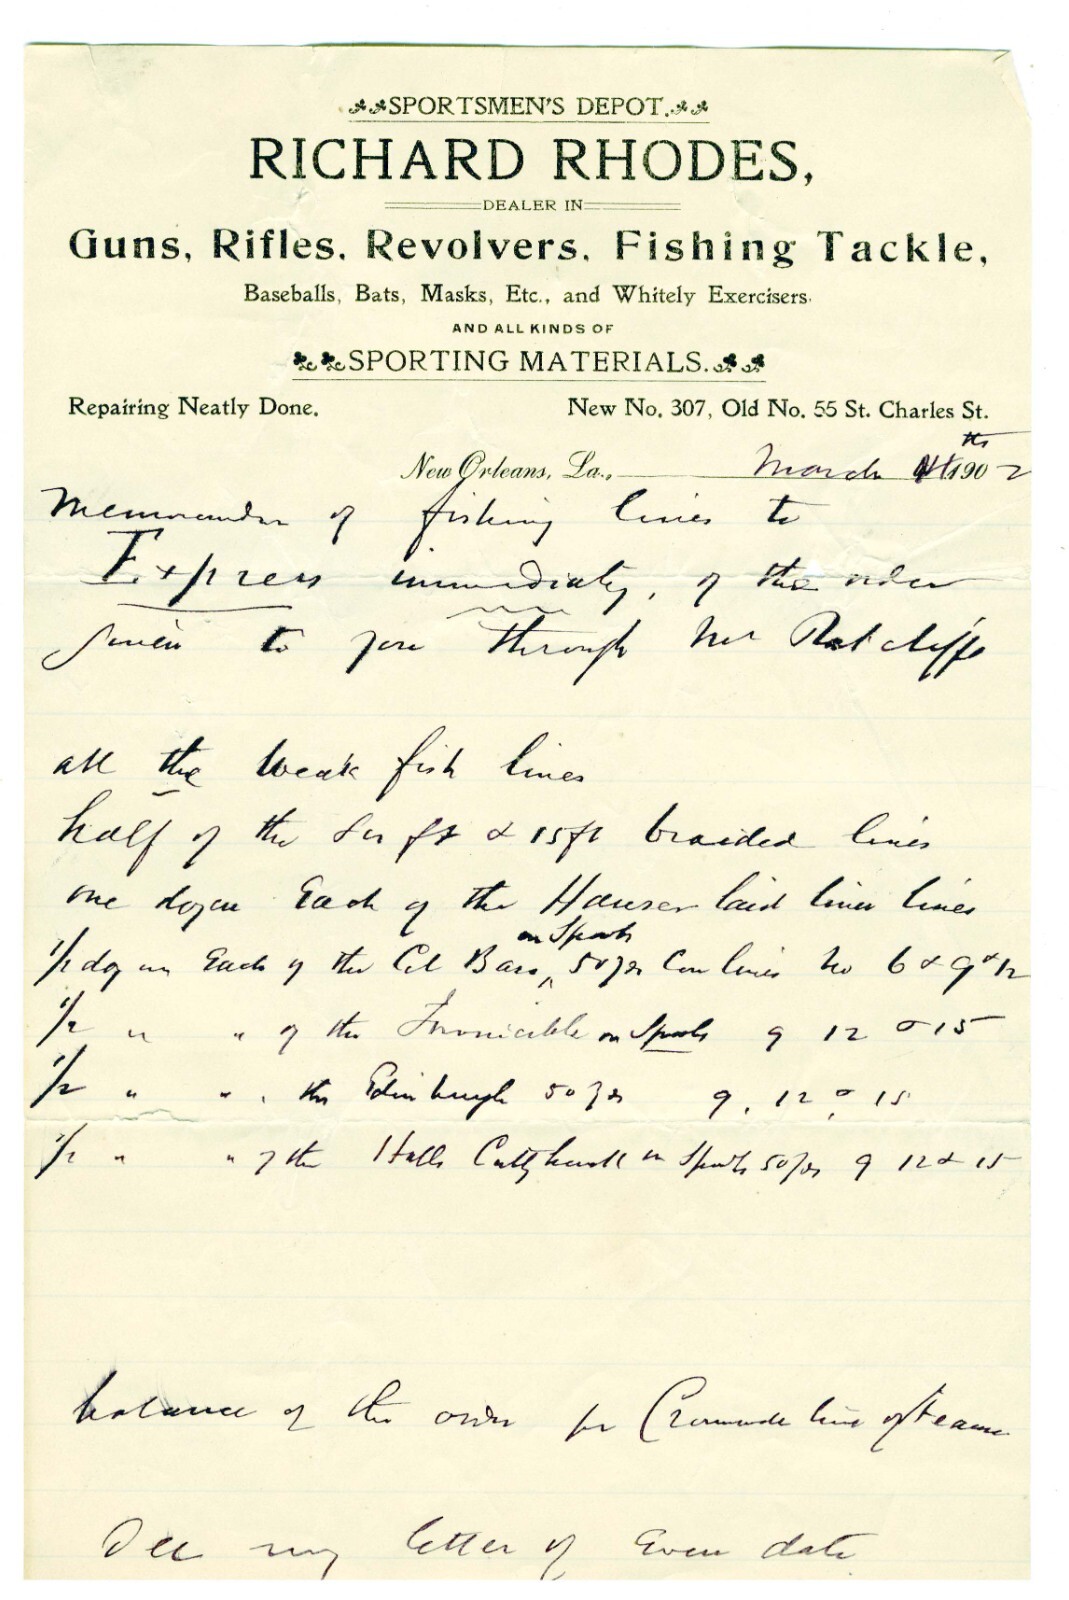 SPORTSMEN'S DEPOT.
RICHARD RHODES,
DEALER IN
Guns, Rifles, Revolvers, Fishing Tackle,
Baseballs, Bats, Masks, Etc., and Whitely Exercisers.
AND ALL KINDS OF
SPORTING MATERIALS.
Repairing Neatly Done. New No. 307, Old No. 55 St. Charles St.
New Orleans, La., March th 1902
Memorandum of fishing lines to
Express immediately, of the order
given to you through Mr Ratcliffe
all the Weak fish lines
half of the 15ft braided lines
one dozen Each of the Hawser laid linen lines
1/2 dozen Each of the Cel Bass, on Spools 50 yds lines No 6 & 9 & 12
1/2 " " of the Invincible on Spools 9 12 & 15
1/2 " " the Edinburgh 50 yds 9, 12 & 15
1/2 " " of the Halls Cuttyhunk on Spools 50 yds 9 12 & 15
balance of the order per Cromwell line Steamer
See my letter of Even date